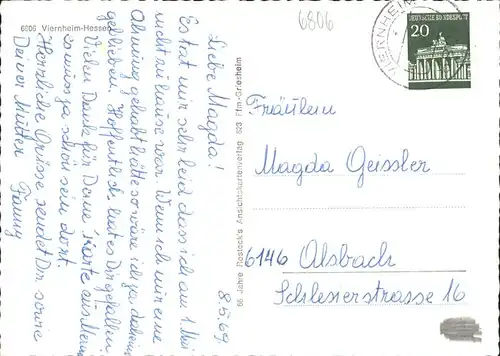 6806 Viernheim-Hessen
6806
DEUTSCHE BUNDESPOST
20
VIERNHEIM
8.5.69.
Liebe Magda!
Es tat mir sehr leid dass ich am 1 Mai
nicht zuhause war. Wenn ich nur eine
Ahnung gehabt hätte so wäre ich ja daheim
geblieben. Hoffentlich hat es Dir gefallen
Vielen Dank für Deine Karte aus
so muss ja schön sein dort.
Herzliche Grüsse sendet Dir sowie
Deiner Mutter Fanny
66 Jahre Rostock's Ansichtskartenverlag 623 Ffm-Griesheim
Fräulein
Magda Geissler
6146 Alsbach
Schlesierstrasse 16